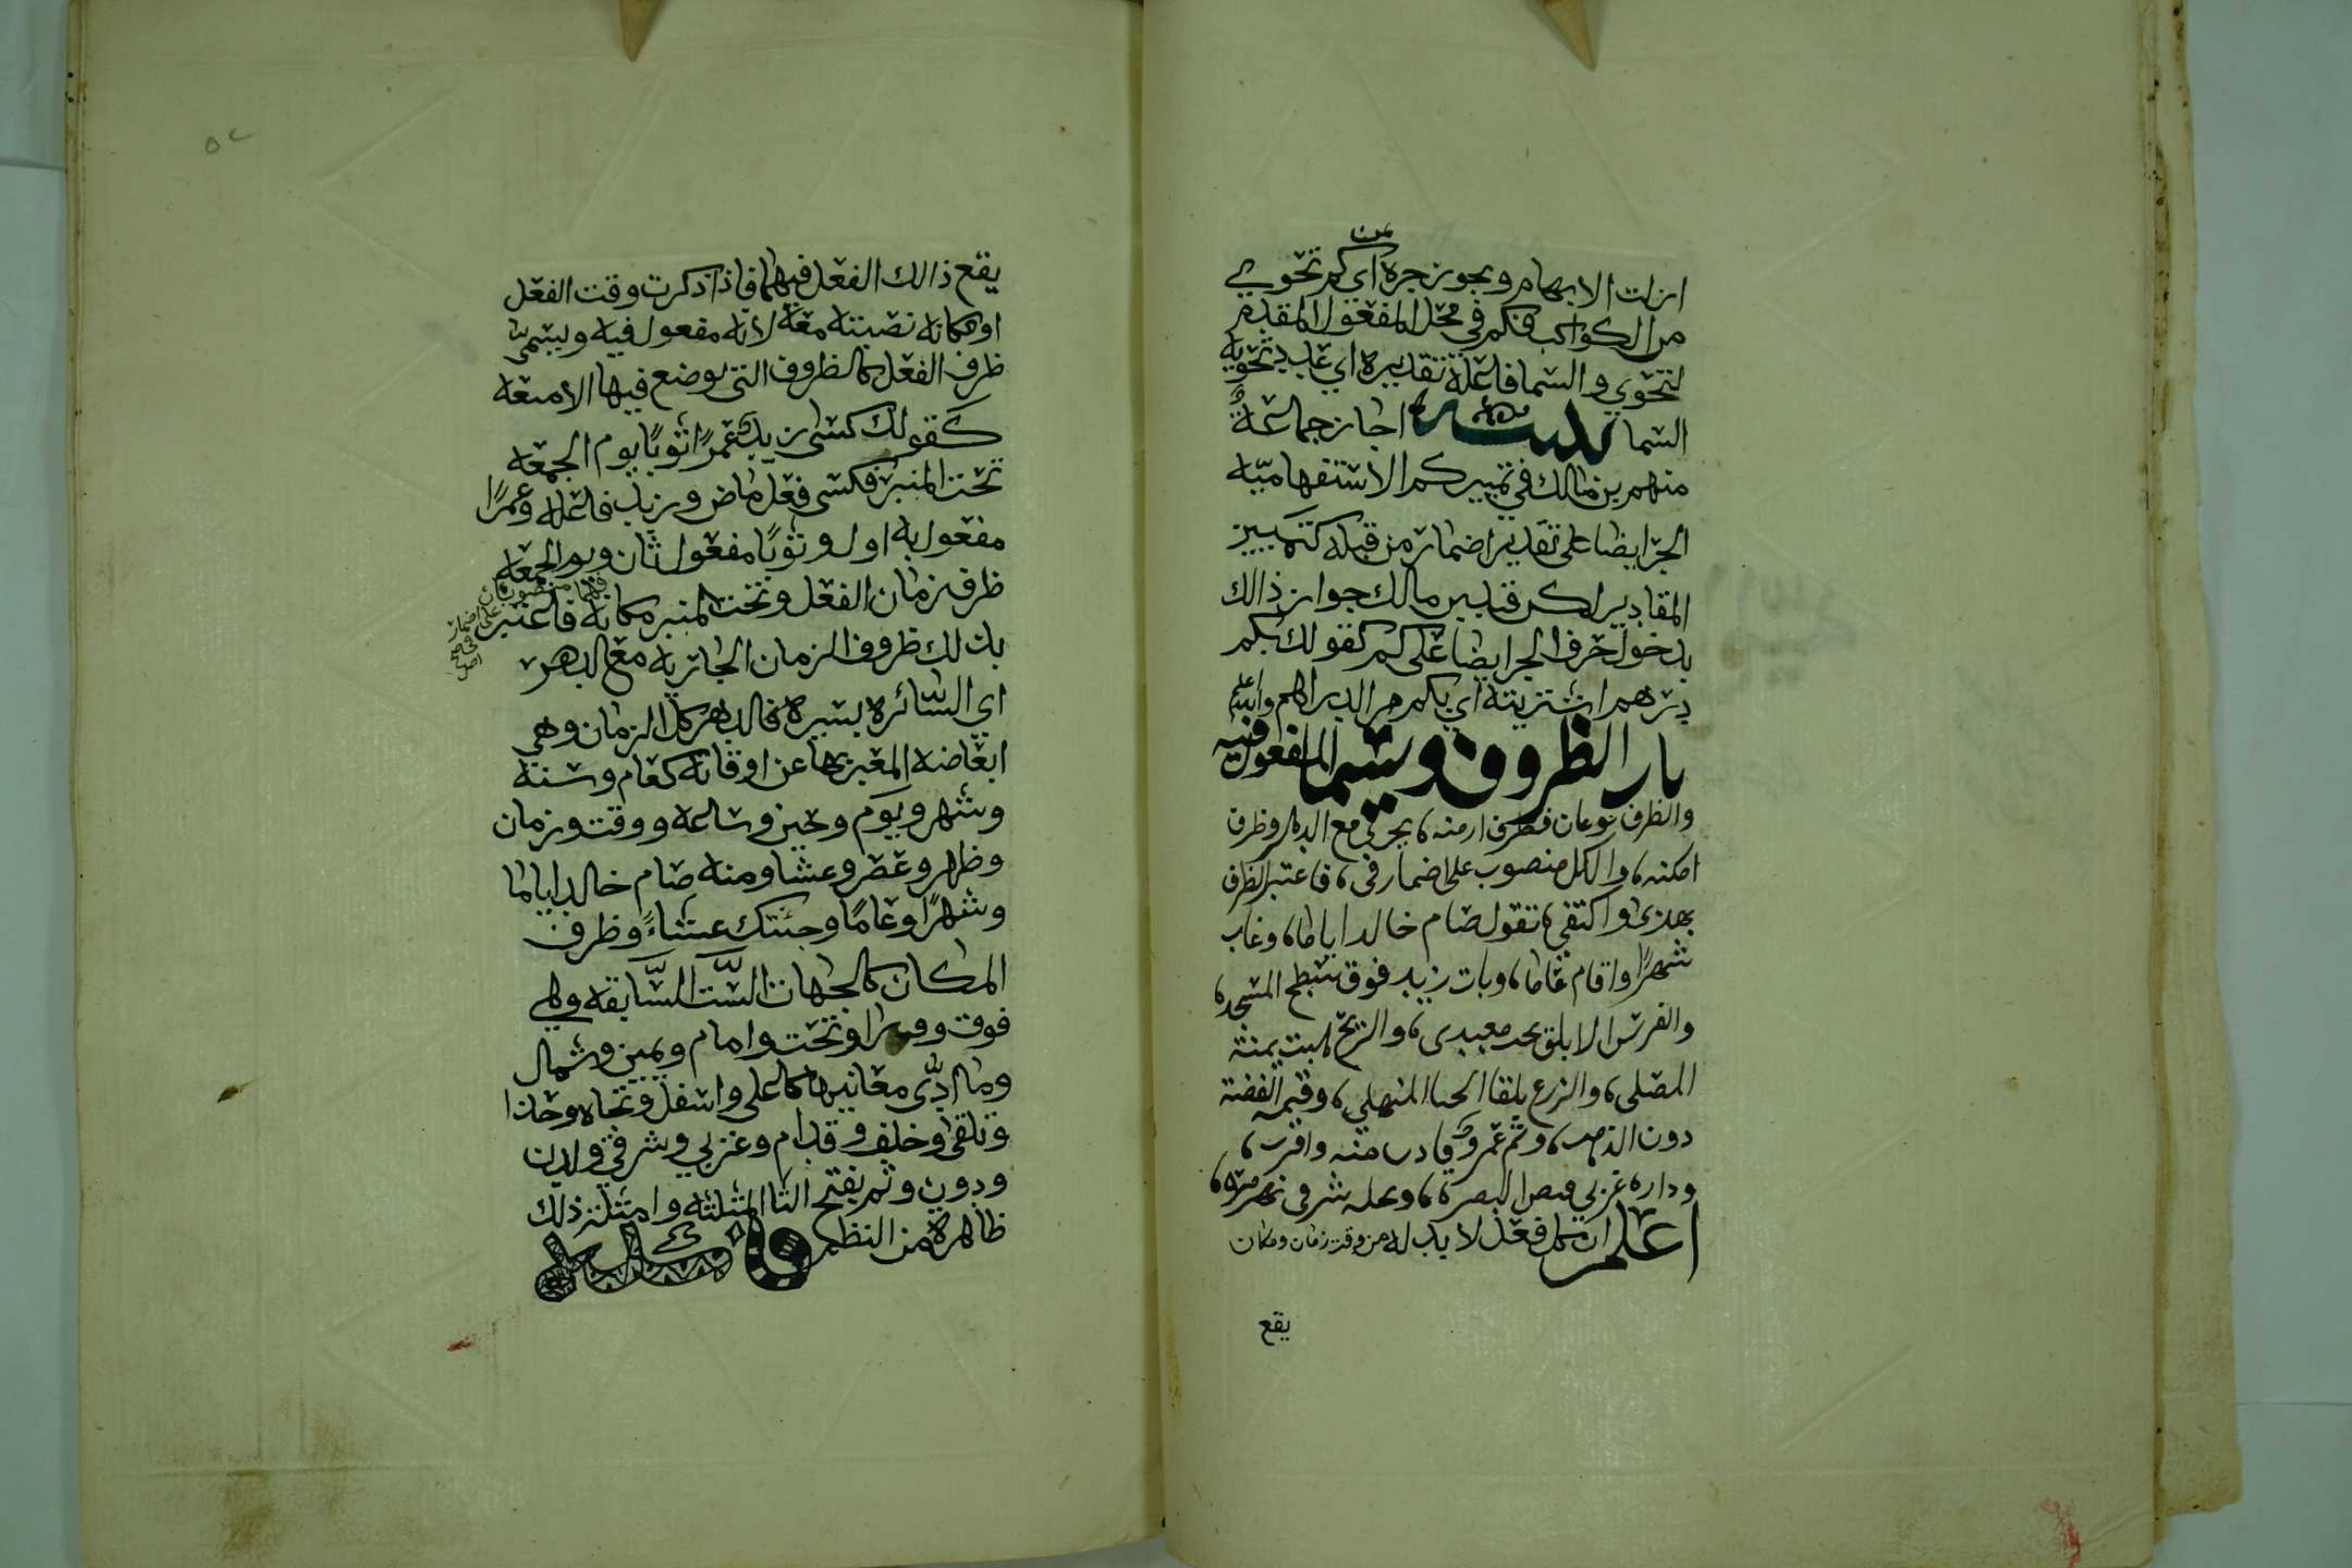 من
ازلت الابهام ويجوز جره اي كم تحوي
من الكواكب فكم في محل المفعول المقدم
لتحوي والسما فاعلة تقديره اي عدد تحويه
السما تنبيه اجاز جماعةٌ
منهم بن مالك في تمييز كم الاستفهاميّه
الجر ايضا على تقدير اضمار من قبله كتمييز
المقادير لكن قيد بن مالك جواز ذالك
بدخول حرف الجر ايضا على كم كقولك بكم
درهم اشتريته اي بكم من الدراهم والله اعلم
باب الظروف ويسما المفعول فيه
والظرف نوعان فظرف ازمنه، يجري مع الدهر وظرف
امكنه، والكل منصوب على اضمار في، فاعتبر الظرف
بهذى واكتفي، تقول صام خالد اياما، وغاب
شهرًا واقام عاما، وبات زيد فوق سطح المسجد،
والفرس الابلق تحت معبدى، والريح هبت يمنة
المصلي، والزرع تلقا الحيا المنهلي، وقيمه الفضة
دون الذهب، وثم عمروٌ فادن منه واقرب،
وداره غربي فيض البصره، ونخله شرقي نهر مره،
اعلم ان كل فعل لا بد له من وقت زمان ومكان
يقع
٥٢
يقع ذالك الفعل فيهما فاذا ذكرت وقت الفعل
او مكانه نصبته معه لانه مفعول فيه ويسمى
ظرف الفعل كالظروف التي يوضع فيها الامتعه
كقولك كسى زيد عمرًا ثوبًا يوم الجمعه
تحت المنبر فكسى فعل ماض وزيد فاعله وعمرًا
مفعول به اول وثوبًا مفعول ثان ويوم الجمعه
ظرف زمان الفعل وتحت المنبر مكانه فاعتبر
فهما منصوبان على اضمار في صح اصل
بذلك ظروف الزمان الجاريه مع الدهر
اي السائره بسيره فالدهر كل الزمان وهي
ابعاضه المعبر بها عن اوقاته كعام وسنه
وشهر ويوم وحين وساعه ووقت وزمان
وظهر وعصر وعشا ومنه صام خالد اياما
وشهرًا وعامًا وجئتك عشاءً وظرف
المكان كالجهات الستّ السّابقه وهي
فوق وورا وتحت وامام ويمين وشمال
وما ادّى معانيها كاعلى واسفل وتجاه وحذا
وتلقى وخلف وقدام وغربي وشرقي ولدن
ودون وثم بفتح الثا المثلثه وامثله ذلك
ظاهرة من النظم